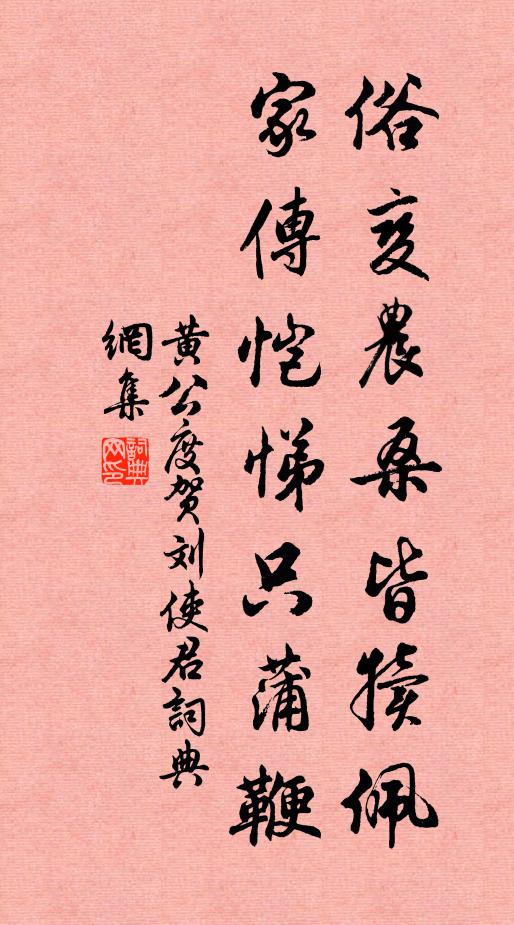 俗变農桑皆犢佩
家傳愷悌只蒲鞭
黄公度贺刘使君詞典
網集
詞典网印